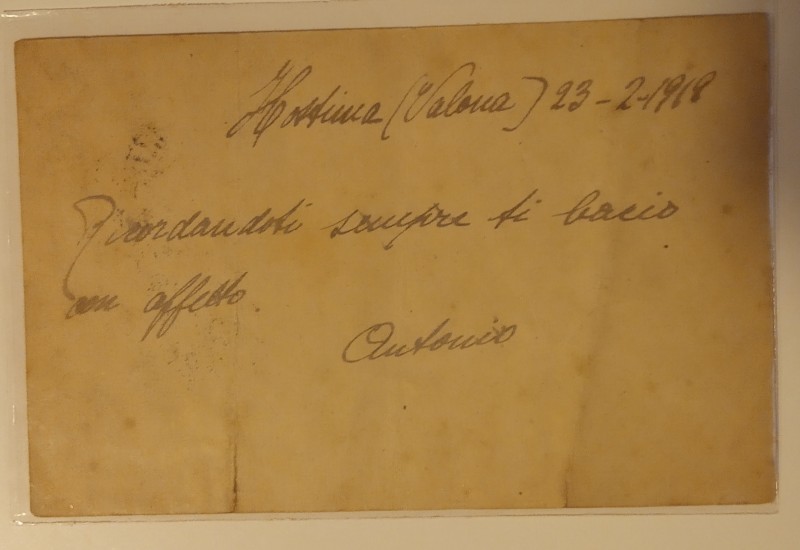 Hostima (Valona) 23-2-1918
Ricordandoti sempre ti bacio
con affetto.
Antonio